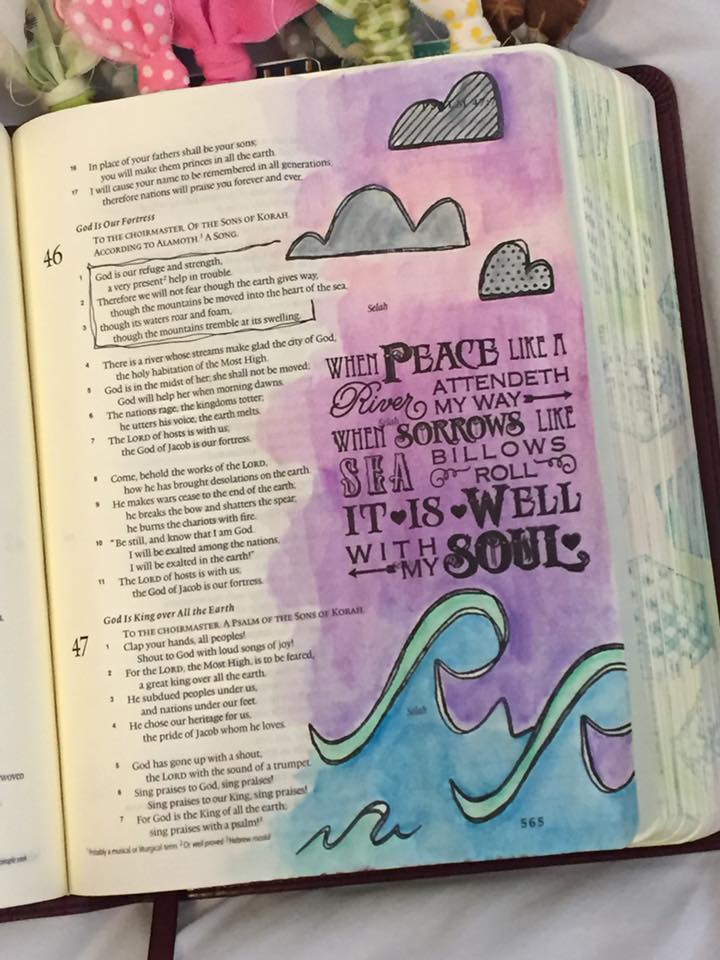 PSALM 47:7
16 In place of your fathers shall be your sons;
you will make them princes in all the earth.
17 I will cause your name to be remembered in all generations;
therefore nations will praise you forever and ever.
God Is Our Fortress
46 TO THE CHOIRMASTER. OF THE SONS OF KORAH.
ACCORDING TO ALAMOTH.¹ A SONG.
1 God is our refuge and strength,
a very present² help in trouble.
2 Therefore we will not fear though the earth gives way,
though the mountains be moved into the heart of the sea,
3 though its waters roar and foam,
though the mountains tremble at its swelling. Selah
4 There is a river whose streams make glad the city of God,
the holy habitation of the Most High.
5 God is in the midst of her; she shall not be moved;
God will help her when morning dawns.
6 The nations rage, the kingdoms totter;
he utters his voice, the earth melts.
7 The LORD of hosts is with us;
the God of Jacob is our fortress. Selah
8 Come, behold the works of the LORD,
how he has brought desolations on the earth.
9 He makes wars cease to the end of the earth;
he breaks the bow and shatters the spear;
he burns the chariots with fire.
10 "Be still, and know that I am God.
I will be exalted among the nations,
I will be exalted in the earth!"
11 The LORD of hosts is with us;
the God of Jacob is our fortress.
God Is King over All the Earth
47 TO THE CHOIRMASTER. A PSALM OF THE SONS OF KORAH.
1 Clap your hands, all peoples!
Shout to God with loud songs of joy!
2 For the LORD, the Most High, is to be feared,
a great king over all the earth.
3 He subdued peoples under us,
and nations under our feet.
4 He chose our heritage for us,
the pride of Jacob whom he loves. Selah
5 God has gone up with a shout,
the LORD with the sound of a trumpet.
6 Sing praises to God, sing praises!
Sing praises to our King, sing praises!
7 For God is the King of all the earth;
sing praises with a psalm!³
¹ Probably a musical or liturgical term ² Or well proved ³ Hebrew maskil
WHEN PEACE LIKE A
River ATTENDETH
MY WAY
WHEN SORROWS LIKE
SEA BILLOWS
ROLL
IT IS WELL
WITH
MY SOUL
565